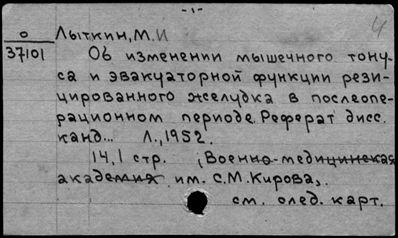 -1-
4
Лыткин, М.И
0
37101
Об изменении мышечного тону-
са и эвакуаторной функции рези-
цированного желудка в послеопе-
рационном периоде. Реферат дисс.
канд... Л., 1952.
14,1 стр. (Военно-медицинская
академия им. С.М.Кирова).
см. след. карт.